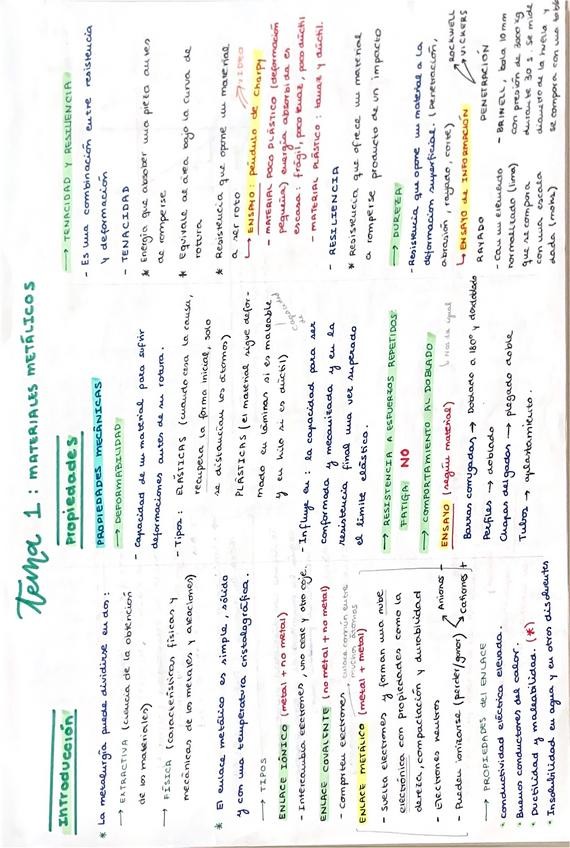 Tema 1: MATERIALES METÁLICOS
Introducción
* La metalurgia puede dividirse en dos:
→ EXTRACTIVA (ciencia de la obtención
de los materiales)
→ FÍSICA (características físicas y
mecánicas de los metales y aleaciones)
* El enlace metálico es simple, sólido
y con una temperatura cristalográfica.
→ TIPOS
ENLACE IÓNICO (metal + no metal)
- Intercambia electrones, uno cede y otro coje.
ENLACE COVALENTE (no metal + no metal)
- Comparten electrones. enlace común entre
muchos átomos
ENLACE METÁLICO (metal + metal)
- Suelta electrones y forman una nube
electrónica con propiedades como la
dureza, compactación y durabilidad
- Electrones neutros
- Pueden ionizarse (perder/ganar) Aniones -
Cationes +
→ PROPIEDADES DEL ENLACE
* Conductividad eléctrica elevada.
* Buenos conductores del calor.
* Ductilidad y maleabilidad. (*)
* Insolubilidad en agua y en otros disolventes
Propiedades
PROPIEDADES MECÁNICAS
→ DEFORMABILIDAD
- Capacidad de un material para sufrir
deformaciones antes de su rotura.
- Tipos: ELÁSTICAS (cuando cesa la causa,
recupera la forma inicial, solo
se distancian los átomos)
PLÁSTICAS (el material sigue defor-
mado en láminas si es maleable
y en hilo si es dúctil)
- Influye en: la capacidad para ser
conformada y mecanizada y en la
resistencia final una vez superado
el límite elástico.
→ RESISTENCIA A ESFUERZOS REPETIDOS
FATIGA NO
→ COMPORTAMIENTO AL DOBLADO
ENSAYO (según material)
Barras corrugadas → Doblado a 180º y desdoblado
Perfiles → doblado
Chapas delgadas → plegado doble
Tubos → aplastamiento.
→ TENACIDAD Y RESILIENCIA
- Es una combinación entre resistencia
y deformación
- TENACIDAD
* Energía que absorber una pieza antes
de romperse
* Equivale al área bajo la curva de
rotura
* Resistencia que opone un material
a ser roto VIDEO
↳ ENSAYO: péndulo de Charpy
- MATERIAL POCO PLÁSTICO (deformación
pequeña) energía absorbida es
escasa: frágil, poco tenaz, poco dúctil
- MATERIAL PLÁSTICO: tenaz y dúctil.
- RESILIENCIA
* Resistencia que ofrece un material
a romperse producto de un impacto
→ DUREZA
- Resistencia que opone un material a la
deformación superficial. (Penetración,
abrasión, rayado, corte)
↳ ENSAYO DE INFORMACIÓN ROCKWELL
VICKERS
RAYADO
- Con un elemento
normalizado (lima)
que se compara
con una escala
dada (mohs)
PENETRACIÓN
- BRINELL, bola 10 mm
con presión de 3000 kg
durante 30 s. Se mide
diámetro de la huella y
se compara con una tabla